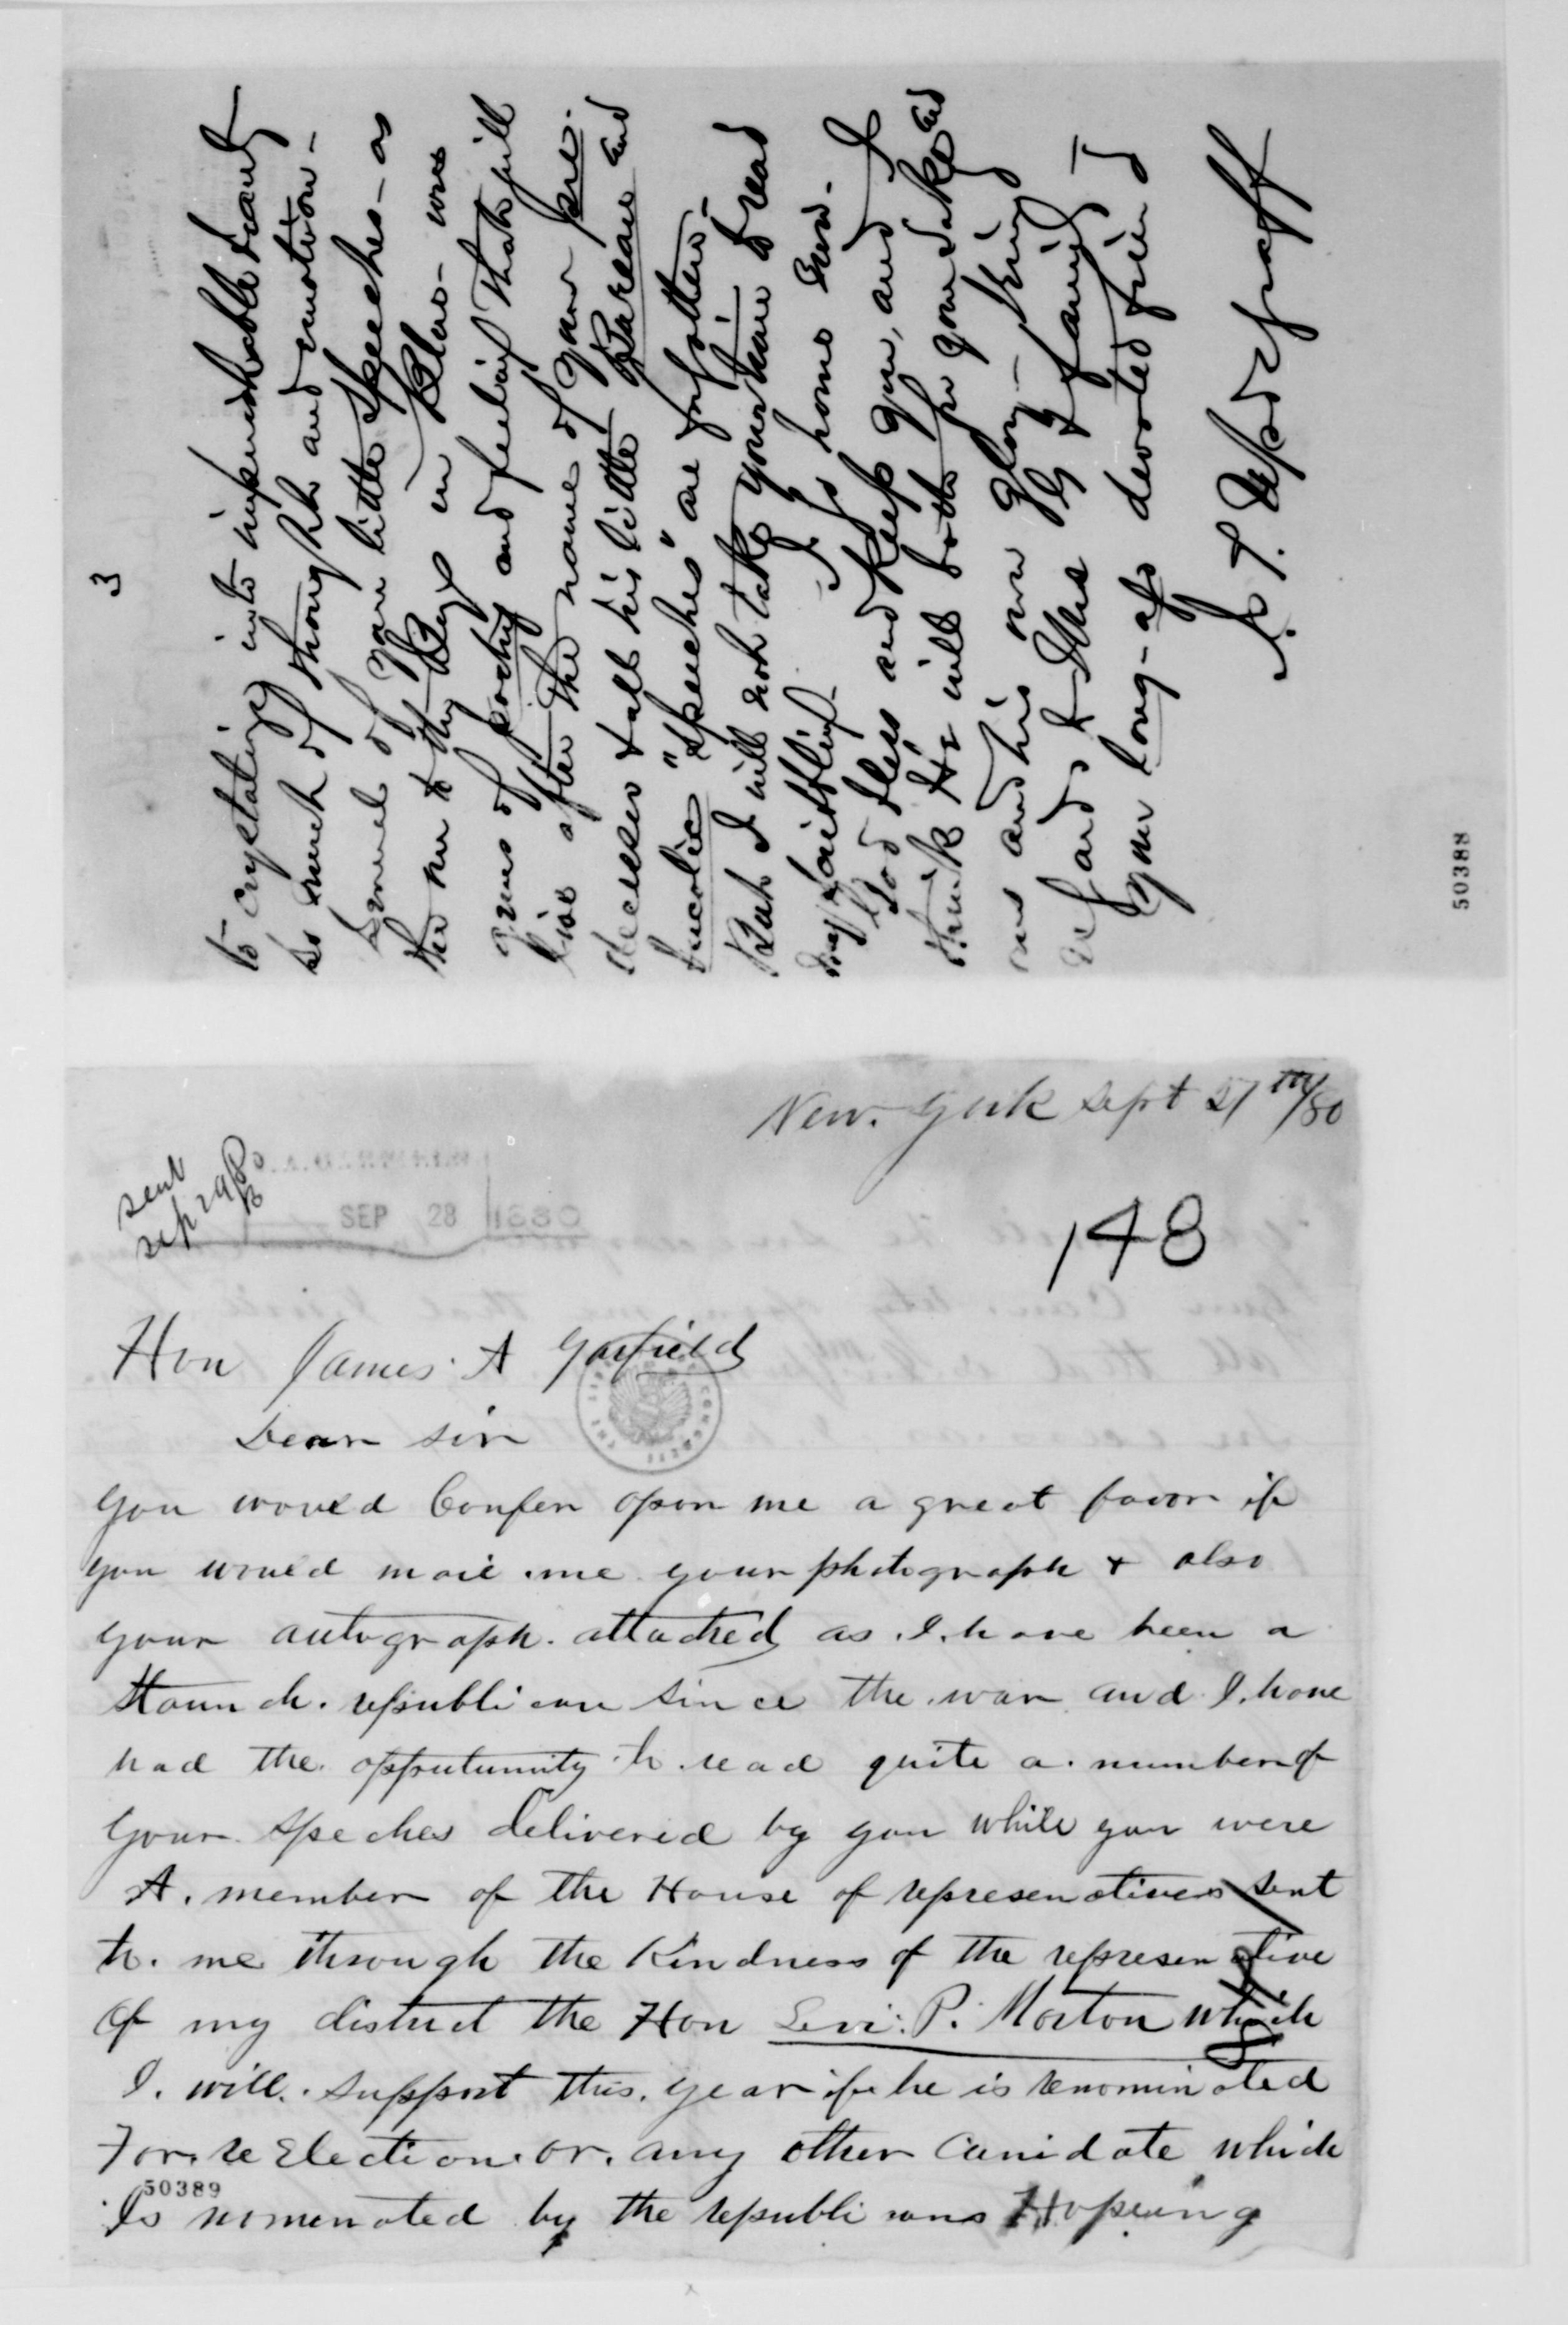 3
to crystalize into imperishable beauty
so much of thought and emotion-
Some of your little speeches - as
the one to the Boys in Blue - were
gems of poetry and feeling that will
live after the name of your
decesser & all his little and
bucolic "speeches" are forgotten-
But I will not take your time to read
my scribbling- I go home Wed.
God bless and keep you, and I
think He will both for your sake and
ours and his own glory- Kind
regards to Mrs G & family
Your long-ago devoted friend
J. T. Updegraff
50388
New. York Sept 27th/80
sent
sep 29 80
SEP 28 1880
148
Hon James. A Garfield
THE LIBRARY OF CONGRESS
Dear sir
you would Confer opon me a great favor if
you would mail me your photograph & also
your autograph. attached as I. have been a
staunch. republican since the war and I. have
had the. opprutunity to. read quite a. number of
your speches delivered by you while you were
A. member of the House of represenatives sent
to. me through the Kindness of the represenative
of my district the Hon Levi. P. Morton which
I. will. support this. year if he is renominated
For. re Election. or. any other Canidate which
50389
Is nomenated by the republicans Hopeing